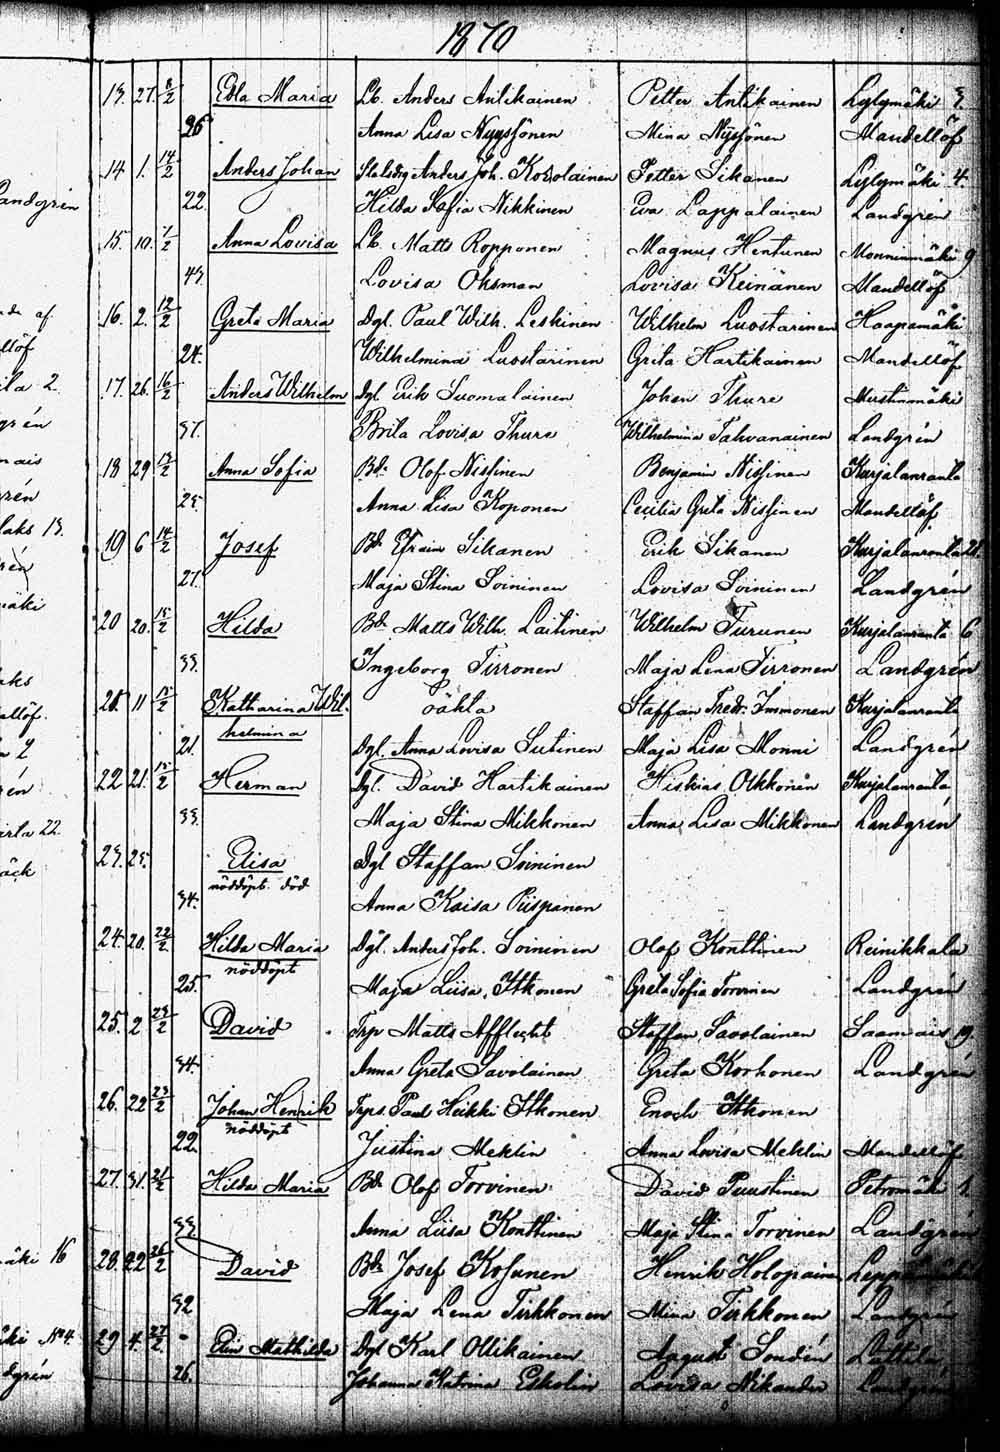 1870
13. 27. 8/2 Edla Maria Lb. Anders Antikainen Petter Antikainen Lylymäki 3
26 Anna Lisa Nyyssönen Mina Nyssönen Mandellöf
14 1. 14/2 Anders Johan Anders Joh. Kokolainen Petter Sikanen Lylymäki 4.
andgrén 22 Hilda Sofia Nikkinen Eva Lappalainen Landgrén
15. 10. 7/2 Anna Lovisa Lb. Matts Ropponen Magnus Hentunen Monninmäki 9
43. Lovisa Oksman Lovisa Keinänen Mandellöf
16. 2. 12/2 Greta Maria Dgl. Paul Wilh. Leskinen Wilhelm Luostarinen Haapamäki
löf 24. Wilhelmina Luostarinen Grita Hartikainen Mandellöf
17. 26. 16/2 Anders Wilhelm Dgl Erik Suomalainen Johan Thure Mustinmäki
grén 37. Brita Lovisa Thure Wilhelmina Tahvanainen Landgrén
18 29 13/2 Anna Sofia Bd. Olof Nissinen Benjamin Nissinen Kurjalanranta
rén 25. Anna Lisa Koponen Cecilia Greta Nissinen Mandellöf
laks 13. 19 6 14/2 Josef Bd. Efraim Sikanen Erik Sikanen Kurjalanranta 21.
rén 27. Maja Stina Soininen Lovisa Soininen Landgrén
mäki 20 20. 15/2 Hilda Bd. Matts Wilh. Laitinen Wilhelm Turunen Kurjalanranta 6
33. Ingeborg Tirronen Maja Lena Tirronen Landgrén
aks 11 15/2 Katharina Wil- oäkta Staffan Thedr. Immonen Kurjalanranta
helmina
21. Dgl. Anna Lovisa Sutinen Maja Lisa Monni Landgrén
22 21. 15/2 Herman Dgl. David Hartikainen Hiskias Olkkonen Kurjalanranta
33. Maja Stina Mikkonen Anna Lisa Mikkonen Landgrén
23. 25. Elisa Dgl Staffan Soininen
nöddöpt. död
34. Anna Kaisa Piispanen
24. 20. 22/2 Hilda Maria Dgl. Anders Joh. Soininen Olof Konttinen Reinikkala
nöddöpt
25. Maja Liisa Itkonen Greta Sofia Torvinen Landgrén
25. 2 23/2 David Trp Matts Afflecht Staffan Savolainen Saamais 19.
34. Anna Greta Savolainen Greta Korhonen Landgrén
26. 22 23/2 Johan Henrik Trps. Paul Heikki Itkonen Enoch Itkonen
nöddöpt
22. Justina Meklin Anna Lovisa Meklin Mandellöf
27. 31. 21/2 Hilda Maria Bd. Olof Torvinen David Puustinen Petromäki 1.
33. Anna Liisa Konttinen Maja Stina Torvinen Landgrén
mäki 16 28. 22 26/2 David Bd. Josef Kosunen Henrik Holopainen
32 Maja Lena Tirkkonen Mina Tirkkonen Landgrén
No 4. 29 4. 27/2. Elin Mathilda Dgl Karl Ollikainen August Sondén Lättilä
dgrén 26. Johanna Katrina Eskolin Lovisa Nikander Landgrén